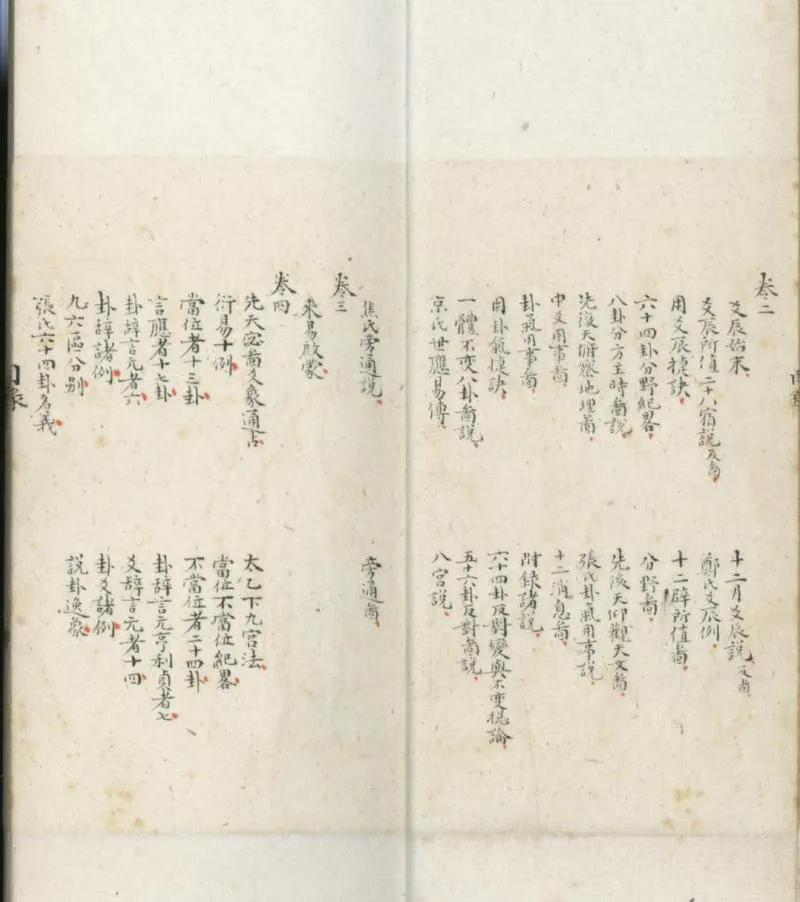 卷二
爻辰始末
十二月爻辰説及啚
爻辰所值二十八宿説及啚
鄭氏爻辰例
用爻辰捷訣
十二辟所值啚
六十四卦分野紀畧
分野啚
八卦分方主時啚説
先後天仰觀天文啚
先後天俯察地理啚
張氏卦氣用事説
中爻用事啚
十二消息啚
卦氣用事啚
附録諸説
用卦氣捷訣
六十四卦反對變與不变揔論
一體不变八卦啚説
五十六卦反對啚説
京氏世應易傳
八宫説
焦氏旁通説
旁通啚
卷三
來易啟蒙
卷四
先天宻啚爻象通占
太乙下九宫法
衍易十例
當位不當位紀畧
當位者十三卦
不當位者二十四卦
言應者十七卦
卦辭言元亨利貞者七
卦辭言元者六
爻辭言元者十四
卦辭諸例
卦爻諸例
九六區分别
説卦逸象
張氏六十四卦名義
目录